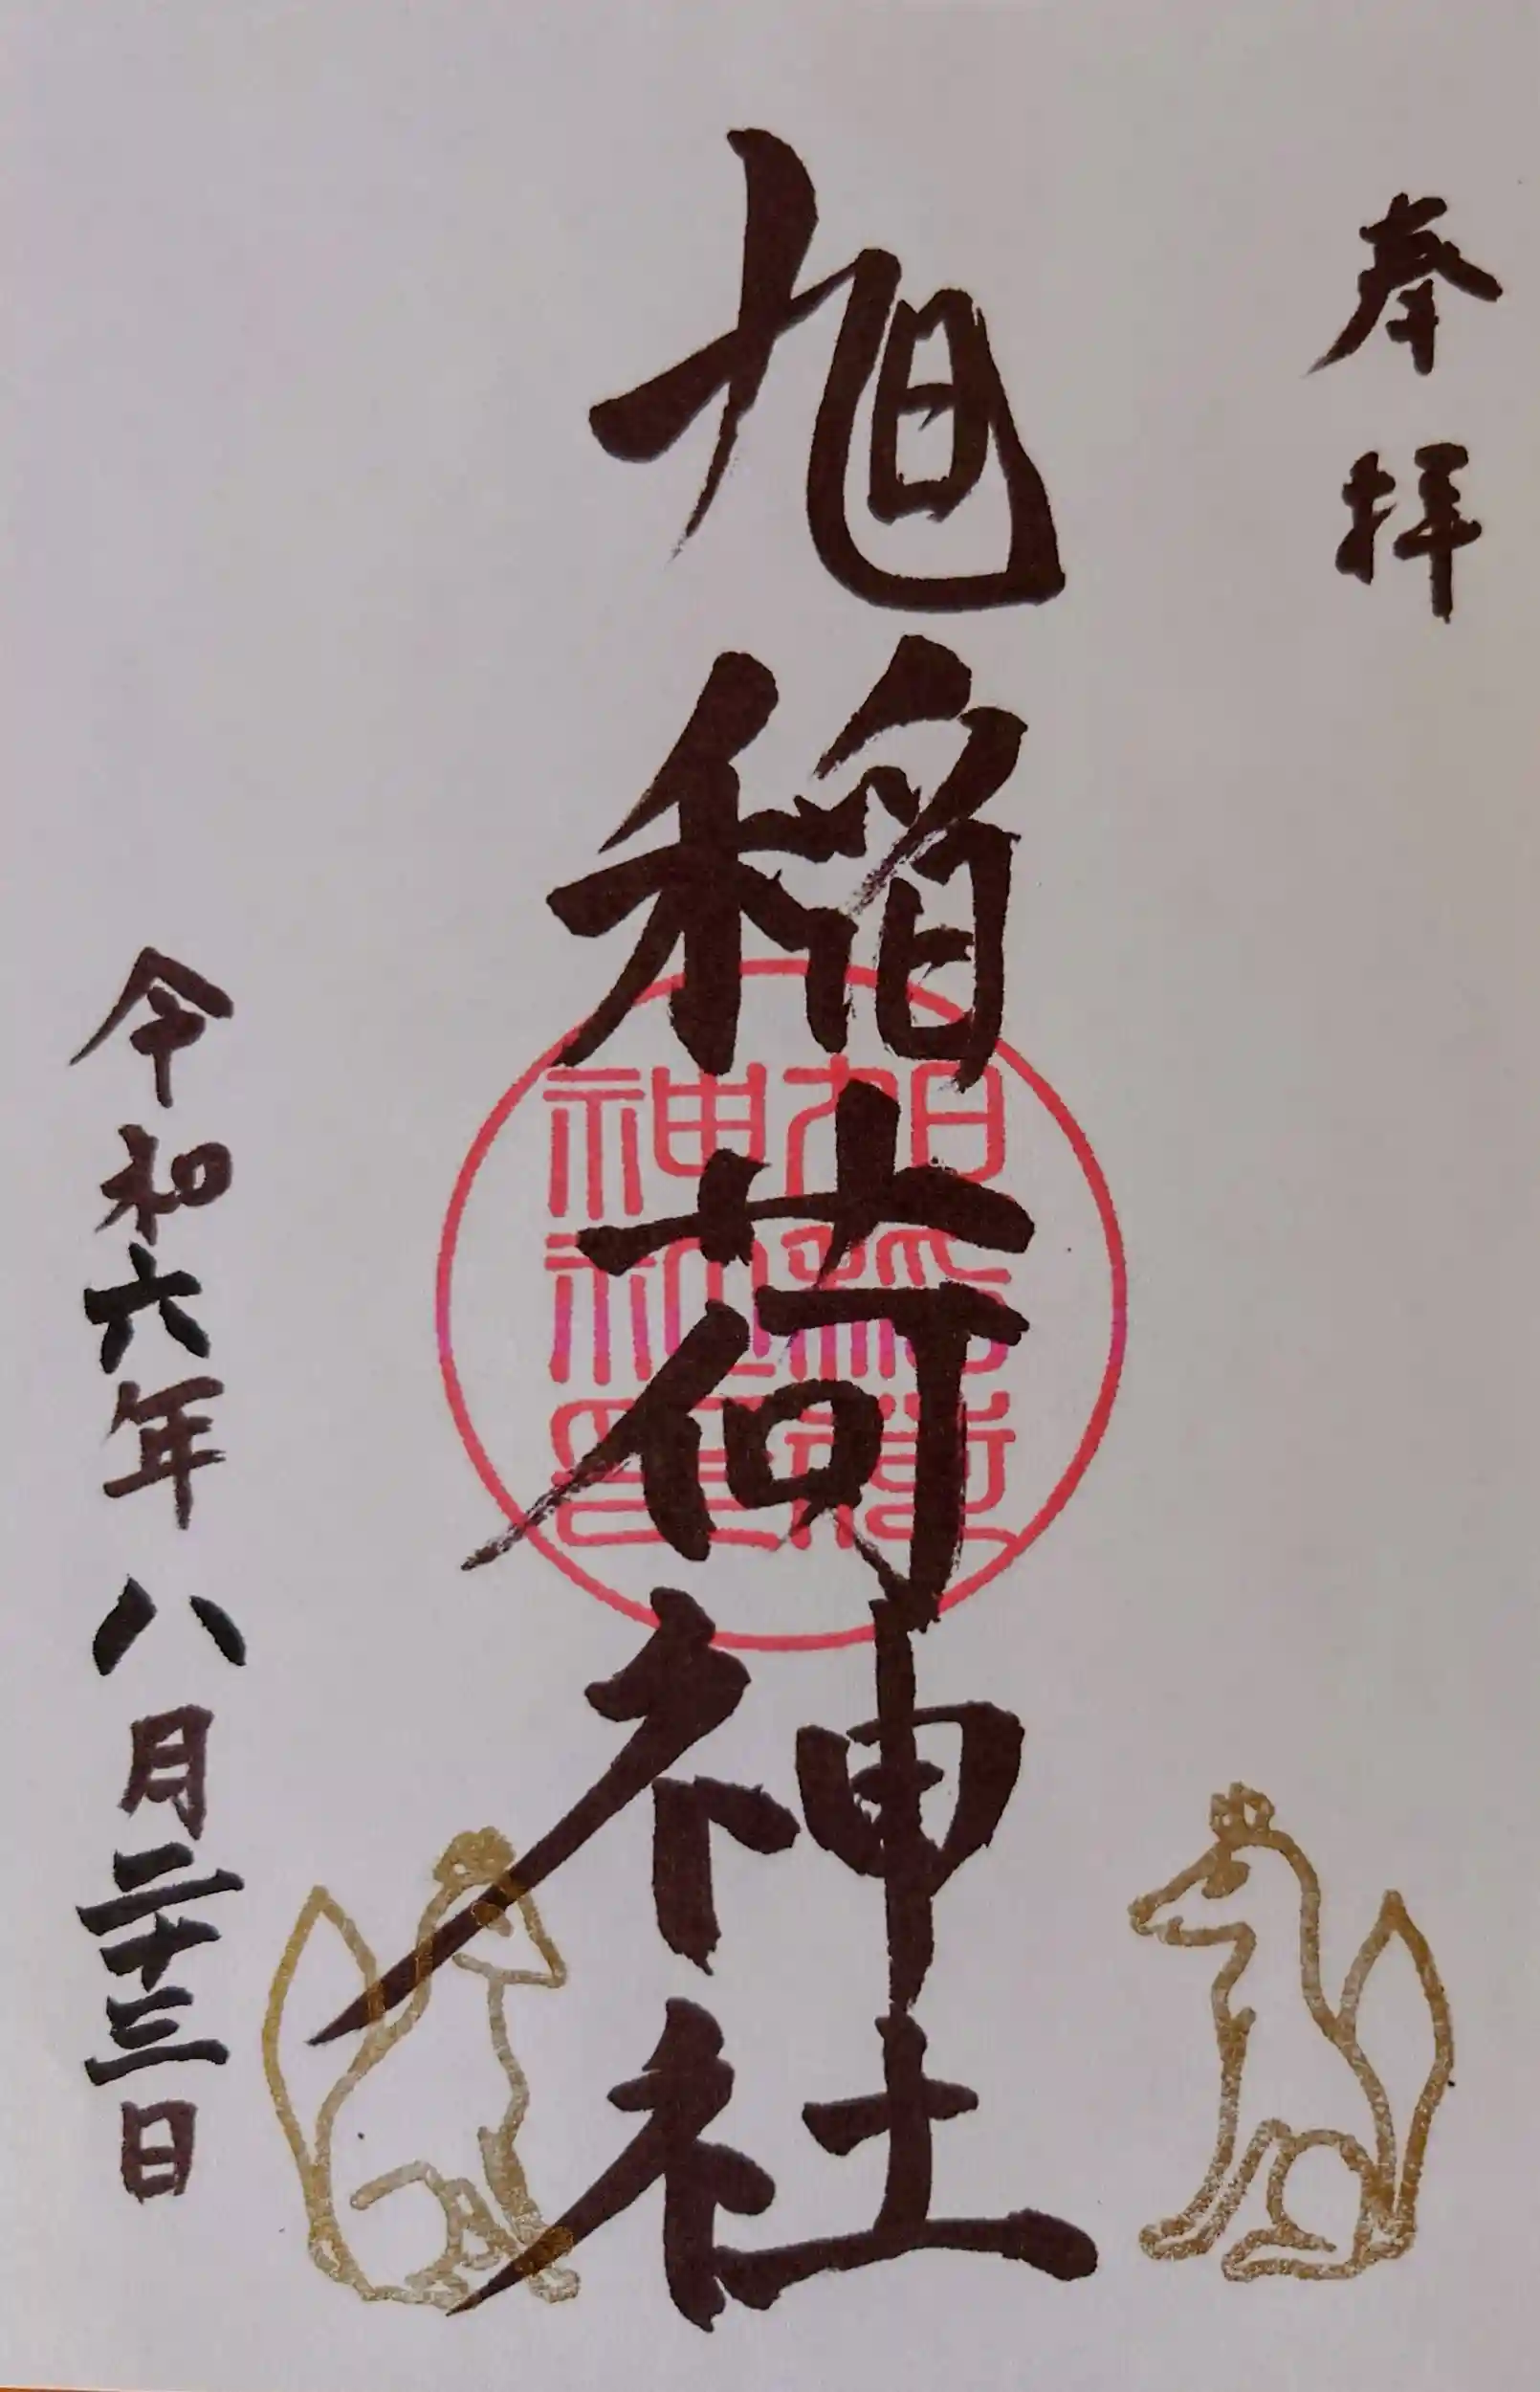 奉拝
旭稲荷神社
旭稲荷
神社印
令和六年八月二十三日